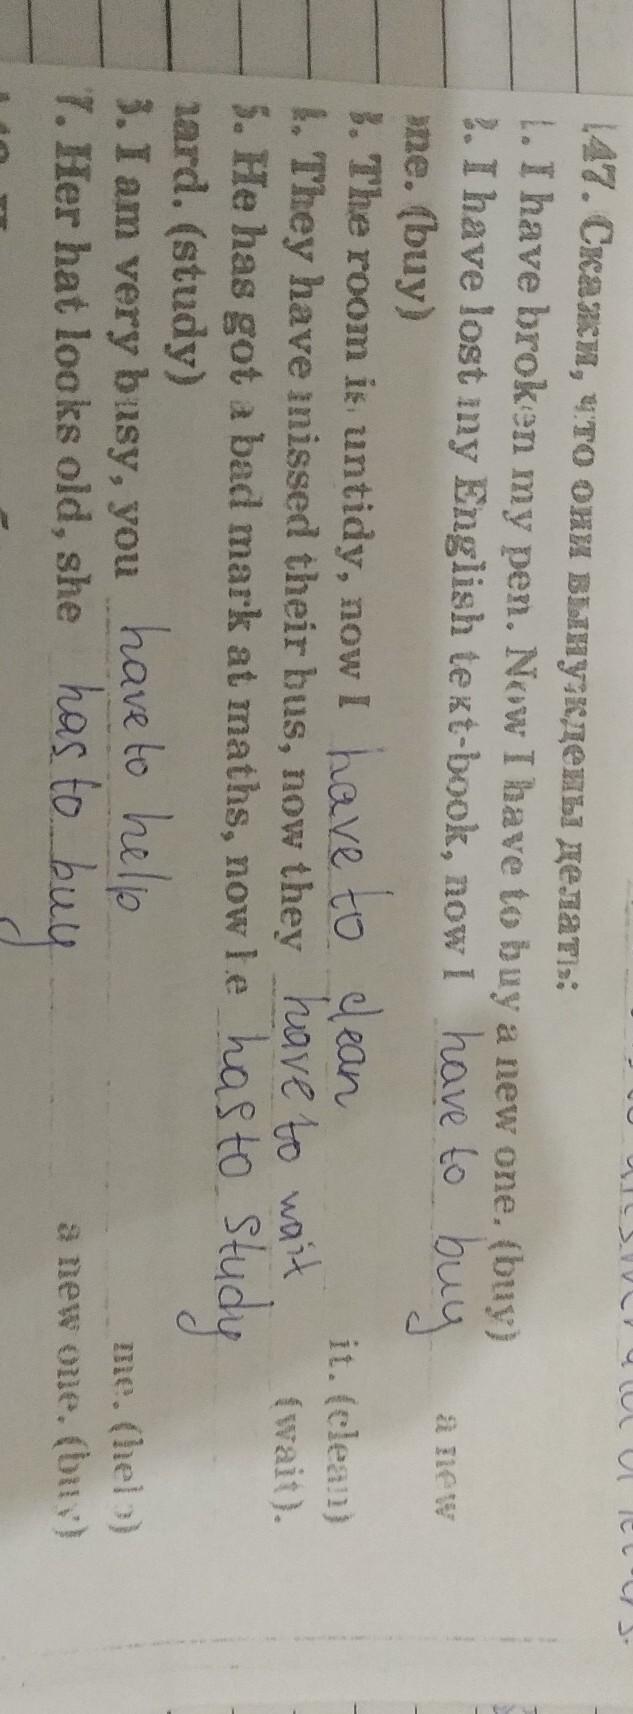 147. Скажи, что они вынуждены делать:
1. I have broken my pen. Now I have to buy a new one. (buy)
2. I have lost my English text-book, now I have to buy a new
one. (buy)
3. The room is untidy, now I have to clean it. (clean)
4. They have missed their bus, now they have to wait (wait).
5. He has got a bad mark at maths, now he has to study
hard. (study)
6. I am very busy, you have to help me. (help)
7. Her hat looks old, she has to buy a new one. (buy)